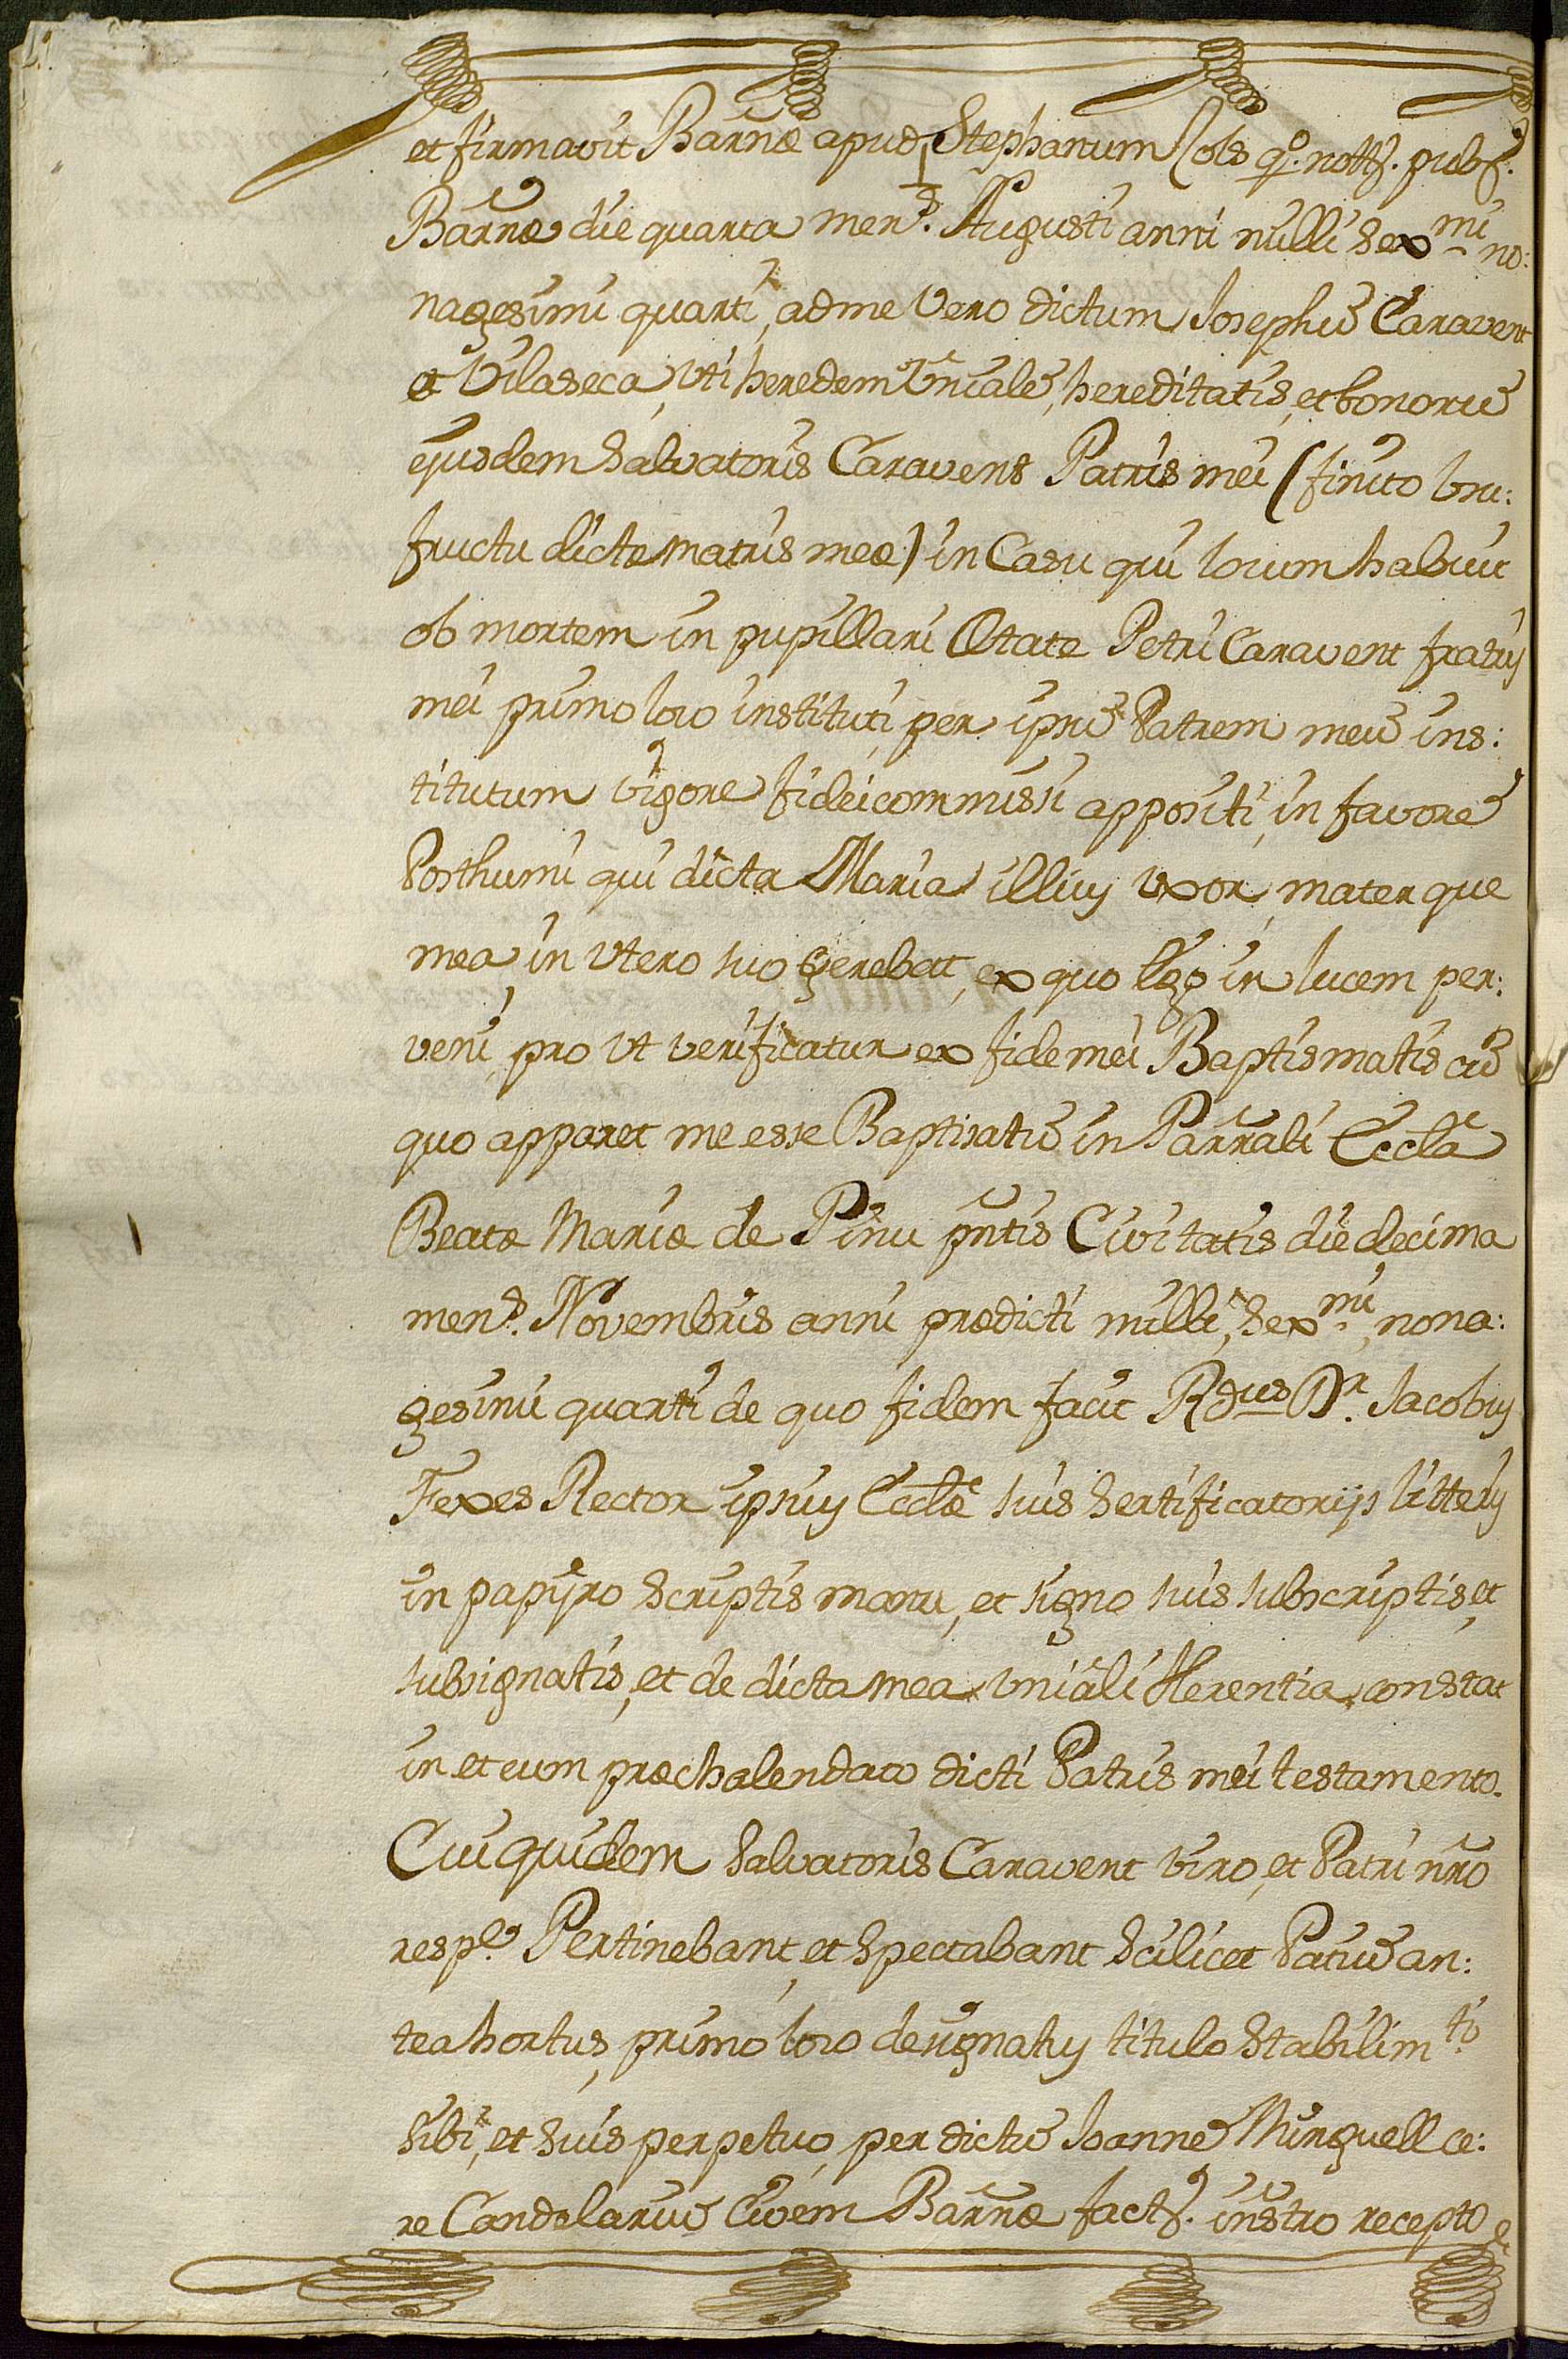 et firmavit Barñæ apud Stephanum Cols qº. nott. pub.
Barñæ die quarta menˢ. Augusti anni milli sexᵐⁱ no:
nagesimi quarti, ad me vero dictum Josephũ Caravent
et Vilaseca, vti heredem Vniãlẽ, hereditatis, et bonorũ
ejusdem Salvatoris Caravent Patris mei (finito vsu:
fructu dictæ matris meæ) in Casu qui locum habuit
ob mortem in pupillari Ætate Petri Caravent fratris
mei primo loco instituti, per ipsũ Patrem meũ ins:
titutum vigore fideicommissi appositi, in favorẽ
Posthumi qui dicta Maria illius vxor, mater que
mea in vtero suo gerebat, ex quo Ego in lucem per:
veni, pro vt verificatur ex fide mei Baptismatis cũ
quo apparet me esse Baptisatũ in Parrãli Ecclã
Beatæ Mariæ de Pinu pñtis Civitatis die decima
menˢ. Novembris anni prædicti milli, sexᵐⁱ, nona:
gesimi quarti de quo fidem facit Rᵈᵘˢ Dʳ. Jacobus
Fexes Rector ipsius Ecclæ suis sertificatorijs litteris
in papyro scriptis manu, et signo suis subscriptis, et
subsignatis, et de dicta mea vniãli Herentia, constat
in et cum præchalendato dicti Patris mei testamento.
Cui quidem Salvatoris Caravent viro, et Patri nr̃o
respᵉ. Pertinebant, et spectabant scilicet Patiũ an:
tea hortus, primo loco designatus titulo stabilimᵗⁱ
sibi, et suis perpetuo, per dictũ Joannẽ Minguell ce:
re Candelariũ Civem Barñæ fact. instro recepto